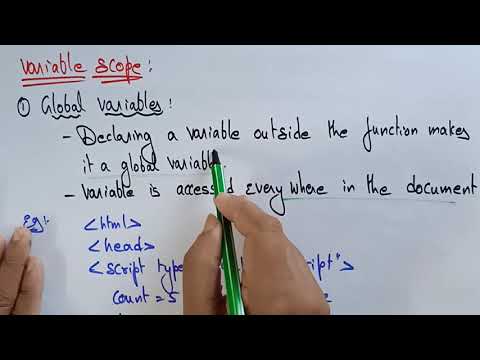 Variable scope :
① Global variables :
- Declaring a variable outside the function makes
it a global variable.
- Variable is accessed every where in the document
Eg:- <html>
<head>
<script type ript">
count = 5